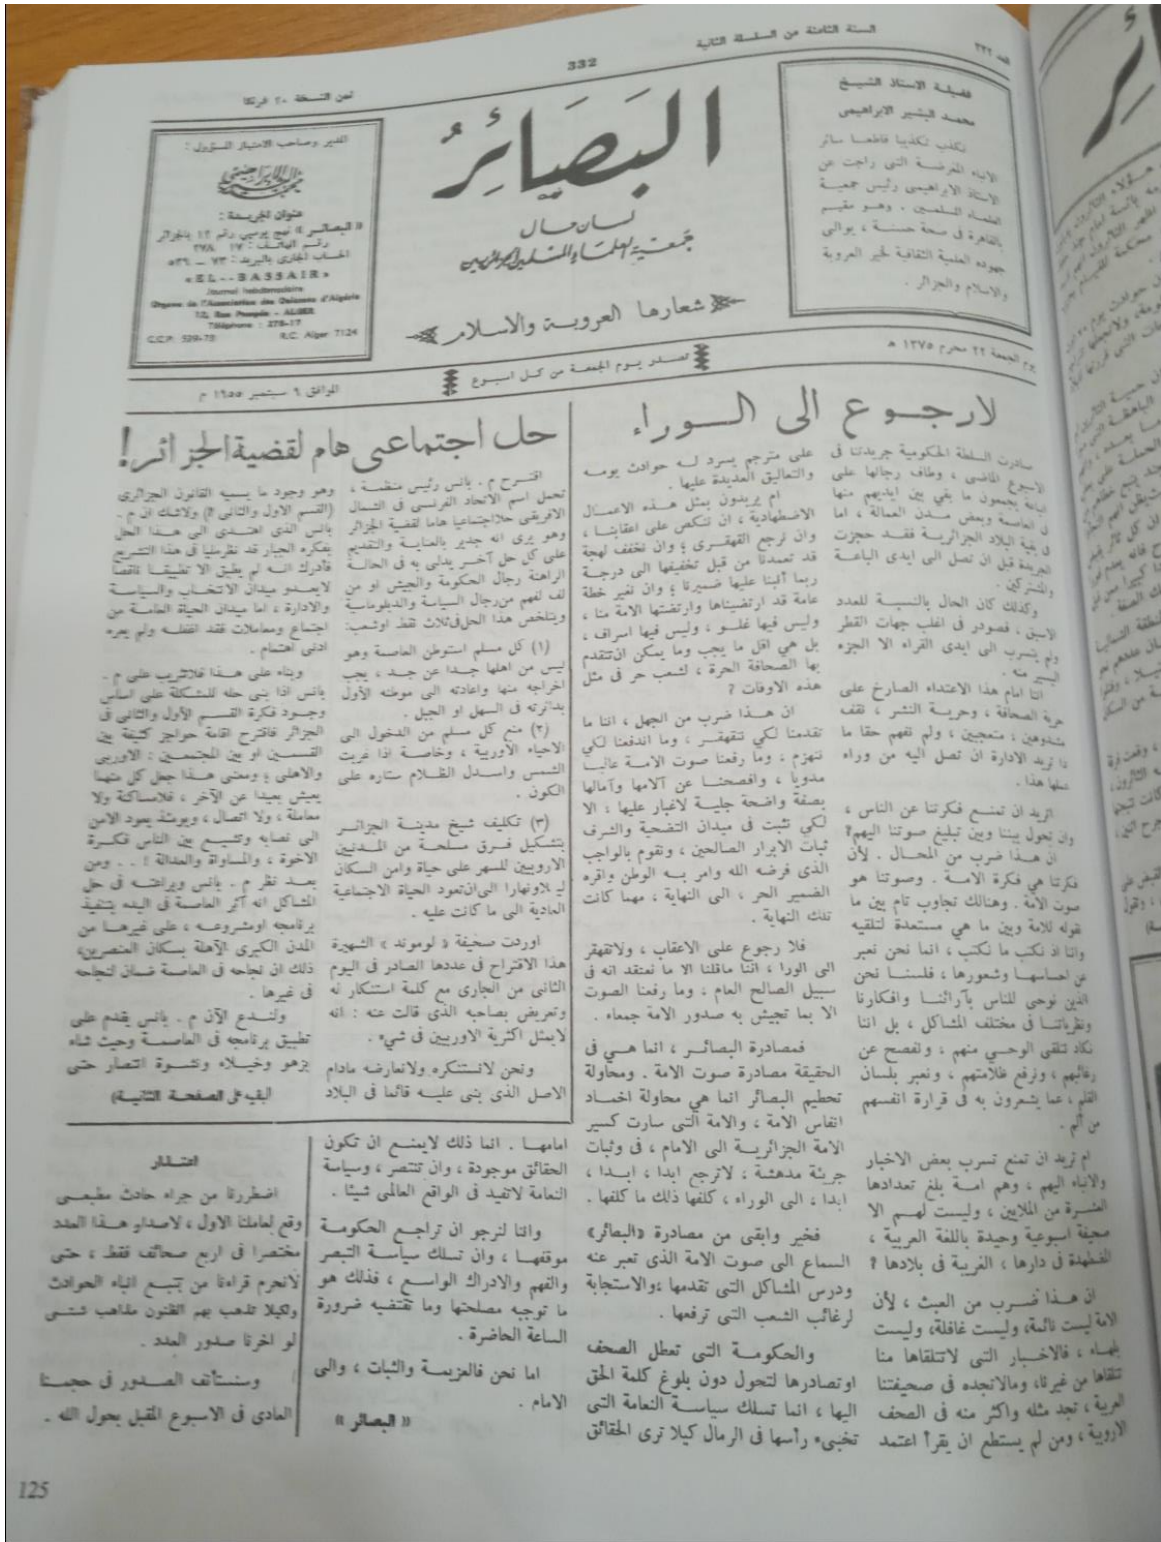 السنة الثامنة من السلسلة الثانية
332
ثمن النسخة ٢٠ فرنكا
فضيلة الاستاذ الشيخ
محمد البشير الابراهيمي
نكذب تكذيبا قاطعا سائر
الانباء المغرضة التى راجت عن
الاستاذ الابراهيمى رئيس جمعية
العلماء المسلمين . وهو مقيم
بالقاهرة فى صحة حسنة ، يوالى
جهوده العلمية الثقافية لخير العروبة
والاسلام والجزائر .
البَصَائِرُ
لسان حال
جمعية العلماء المسلمين الجزائريين
شعارها العروبة والاسلام
المدير وصاحب الامتياز المسؤول :
عنوان الجريدة :
«البصائر» نهج بومبى رقم ١٢ بالجزائر
رقم الهاتف : ١٧ ٢٧٨
الحساب الجارى بالبريد : ٧٣ – ٥٣٩
«EL--BASSAIR»
Journal hebdomadaire
Organe de l'Association des Oulamas d'Algérie
12, Rue Pompée - ALGER
Téléphone : 278-17
C.C.P. 539-73 R.C. Alger 7124
يوم الجمعة ٢٢ محرم ١٣٧٥ هـ
تصدر يوم الجمعة من كل اسبوع
الموافق ٩ سبتمبر ١٩٥٥ م
لارجوع الى الوراء
صادرت السلطة الحكومية جريدتنا فى
الاسبوع الماضى ، وطاف رجالها على
الباعة يجمعون ما بقي بين ايديهم منها
فى العاصمة وبعض مدن العمالة ، اما
فى بقية البلاد الجزائرية فقد حجزت
الجريدة قبل ان تصل الى ايدى الباعة
والمشتركين .
وكذلك كان الحال بالنسبة للعدد
الاسبق ، فصودر فى اغلب جهات القطر
ولم يتسرب الى ايدى القراء الا الجزء
اليسير منه .
اننا امام هذا الاعتداء الصارخ على
حرية الصحافة ، وحرية النشر ، نقف
مشدوهين ؛ متعجبين ، ولم نفهم حقا ما
ذا تريد الادارة ان تصل اليه من وراء
عملها هذا .
اتريد ان تمنع فكرتنا عن الناس ،
وان تحول بيننا وبين تبليغ صوتنا اليهم؟
ان هذا ضرب من المحال . لأن
فكرتنا هي فكرة الامة . وصوتنا هو
صوت الامة . وهنالك تجاوب تام بين ما
نقوله للامة وبين ما هي مستعدة لتلقيه
واننا اذ نكتب ما نكتب ، انما نحن نعبر
عن احساسها وشعورها ، فلسنا نحن
الذين نوحى للناس بآرائنا وافكارنا
ونظرياتنا فى مختلف المشاكل ، بل اننا
نكاد نتلقى الوحي منهم ، ونفصح عن
رغائبهم ، ونرفع ظلامتهم ، ونعبر بلسان
القلم ، عما يشعرون به فى قرارة انفسهم
من ألم .
ام تريد ان تمنع تسرب بعض الاخبار
والانباء اليهم ، وهم امة بلغ تعدادها
العشرة من الملايين ، وليست لهم الا
صحيفة اسبوعية وحيدة باللغة العربية ،
المضطهدة فى دارها ، الغريبة فى بلادها ؟
ان هذا ضرب من العبث ، لأن
الامة ليست نائمة، وليست غافلة، وليست
بلهاء ، فالاخبار التى لاتتلقاها منا
تتلقاها من غيرنا، ومالاتجده فى صحيفتنا
العربية ، تجد مثله واكثر منه فى الصحف
الاروبية ، ومن لم يستطع ان يقرأ اعتمد
على مترجم يسرد له حوادث يومه
والتعاليق العديدة عليها .
ام يريدون بمثل هذه الاعمال
الاضطهادية ، ان ننكص على اعقابنا ،
وان نرجع القهقرى ؛ وان نخفف لهجة
قد تعمدنا من قبل تخفيفها الى درجة
ربما ألبنا عليها ضميرنا ؛ وان نغير خطة
عامة قد ارتضيناها وارتضتها الامة منا ،
وليس فيها غلو ، وليس فيها اسراف ،
بل هي اقل ما يجب وما يمكن ان تتقدم
بها الصحافة الحرة ، لشعب حر فى مثل
هذه الاوقات ؟
ان هذا ضرب من الجهل ، اننا ما
تقدمنا لكي نتقهقر ، وما اندفعنا لكي
ننهزم ، وما رفعنا صوت الامة عاليا
مدويا ، وافصحنا عن آلامها وآمالها
بصفة واضحة جلية لاغبار عليها ؛ الا
لكي نثبت فى ميدان التضحية والشرف
ثبات الابرار الصالحين ، ونقوم بالواجب
الذى فرضه الله وامر به الوطن واقره
الضمير الحر ، الى النهاية ، مهما كانت
تلك النهاية .
فلا رجوع على الاعقاب ، ولاتقهقر
الى الورا ، اننا ماقلنا الا ما نعتقد انه فى
سبيل الصالح العام ، وما رفعنا الصوت
الا بما تجيش به صدور الامة جمعاء .
فمصادرة البصائر ، انما هي فى
الحقيقة مصادرة صوت الامة . ومحاولة
تحطيم البصائر انما هي محاولة اخماد
انفاس الامة ، والامة التى سارت كسير
الامة الجزائرية الى الامام ، فى وثبات
جريئة مدهشة ، لاترجع ابدا ، ابدا ،
ابدا ، الى الوراء ، كلفها ذلك ما كلفها .
فخير وابقى من مصادرة «البصائر»
السماع الى صوت الامة الذى تعبر عنه
ودرس المشاكل التى تقدمها ؛والاستجابة
لرغائب الشعب التى ترفعها .
والحكومة التى تعطل الصحف
اوتصادرها لتحول دون بلوغ كلمة الحق
اليها ، انما تسلك سياسة النعامة التى
تخبىء رأسها فى الرمال كيلا ترى الحقائق
امامها . انما ذلك لايمنع ان تكون
الحقائق موجودة ، وان تنتصر ، وسياسة
النعامة لاتفيد فى الواقع العالمى شيئا .
واننا لنرجو ان تراجع الحكومة
موقفها ، وان تسلك سياسة التبصر
والفهم والادراك الواسع ، فذلك هو
ما توجبه مصلحتها وما تقتضيه ضرورة
الساعة الحاضرة .
اما نحن فالعزيمة والثبات ، والى
الامام .
« البصائر »
حل اجتماعى هام لقضية الجزائر!
اقترح م . بانس رئيس منظمة ،
تحمل اسم الاتحاد الفرنسى فى الشمال
الافريقى حلا اجتماعيا هاما لقضية الجزائر
وهو يرى انه جدير بالعناية والتقديم
على كل حل آخر يدلى به فى الحالة
الراهنة رجال الحكومة والجيش او من
لف لفهم من رجال السياسة والدبلوماسية
ويتلخص هذا الحل فى ثلاث نقط اوشعب:
(١) كل مسلم استوطن العاصمة وهو
ليس من اهلها جدا عن جد ، يجب
اخراجه منها واعادته الى موطنه الأول
بدائرته فى السهل او الجبل .
(٢) منع كل مسلم من الدخول الى
الاحياء الأوربية ، وخاصة اذا غربت
الشمس واسدل الظلام ستاره على
الكون .
(٣) تكليف شيخ مدينة الجزائر
بتشكيل فرق مسلحة من المدنيين
الاروبيين للسهر على حياة وامن السكان
ليلا ونهارا الى ان تعود الحياة الاجتماعية
العادية الى ما كانت عليه .
اوردت صحيفة « لوموند » الشهيرة
هذا الاقتراح فى عددها الصادر فى اليوم
الثانى من الجارى مع كلمة استنكار له
وتعريض بصاحبه الذى قالت عنه : انه
لايمثل اكثرية الاوربيين فى شيء .
ونحن لانستنكره ولانعارضه مادام
الاصل الذى بنى عليه قائما فى البلاد
وهو وجود ما يسميه القانون الجزائرى
(القسم الاول والثانى ؟) ولاشك ان م .
بانس الذى اهتدى الى هذا الحل
بفكره الجبار قد نظر مليا فى هذا التشريع
فأدرك انه لم يطبق الا تطبيقا ناقصا
لايعدو ميدان الانتخاب والسياسة
والادارة ، اما ميدان الحياة العامة من
اجتماع ومعاملات فقد اغفله ولم يعره
ادنى اهتمام .
وبناء على هذا فلاتثريب على م .
بانس اذا بنى حله للمشكلة على اساس
وجود فكرة القسم الأول والثانى فى
الجزائر فاقترح اقامة حواجز كثيفة بين
القسمين او بين المجتمعين : الأوربى
والاهلى ؛ ومعنى هذا جعل كل منهما
يعيش بعيدا عن الآخر ، فلامساكنة ولا
معاملة ، ولا اتصال ، ويومئذ يعود الامن
الى نصابه وتشيع بين الناس فكرة
الاخوة ، والمساواة والعدالة ! . . ومن
بعد نظر م . بانس وبراعته فى حل
المشاكل انه آثر العاصمة فى البدء بتنفيذ
برنامجه اومشروعه ، على غيرها من
المدن الكبرى الآهلة بسكان العنصرين؛
ذلك ان نجاحه فى العاصمة ضمان لنجاحه
فى غيرها .
ولندع الآن م . بانس يقدم على
تطبيق برنامجه فى العاصمة وحيث شاء
بزهو وخيلاء ونشوة انتصار حتى
البقية على الصفحة الثانية)
اعتذار
اضطررنا من جراء حادث مطبعى
وقع لعاملنا الاول ، لاصدار هذا العدد
مختصرا فى اربع صحائف فقط ، حتى
لانحرم قراءنا من تتبع انباء الحوادث
ولكيلا تذهب بهم الظنون مذاهب شتى
لو اخرنا صدور العدد .
وسنستأنف الصدور فى حجمنا
العادى فى الاسبوع المقبل بحول الله .
125